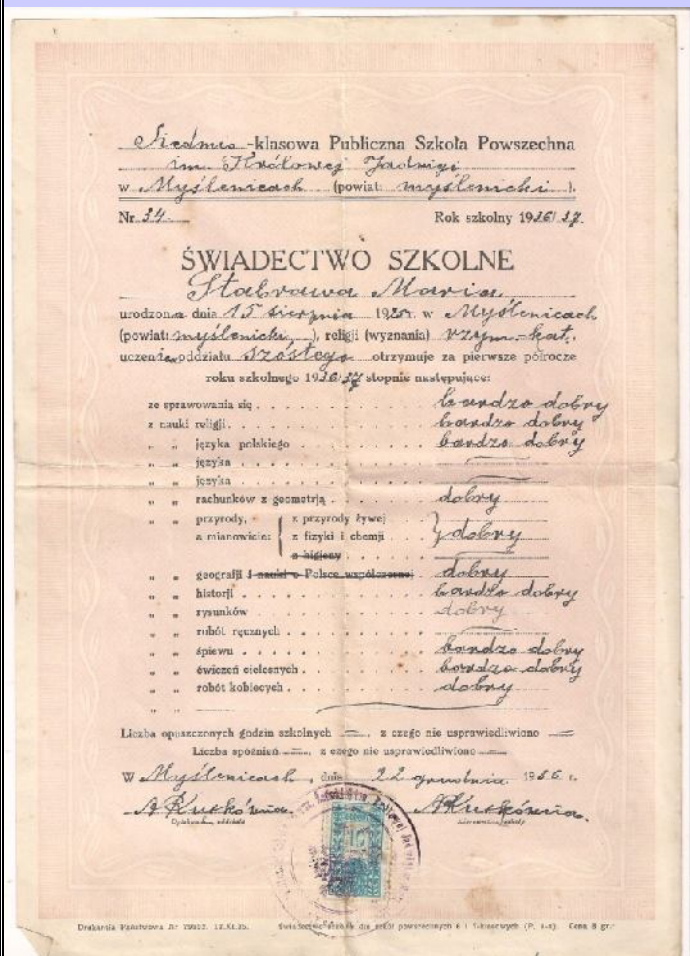 Siedmio-klasowa Publiczna Szkoła Powszechna
im. Królowej Jadwigi
w Myślenicach (powiat: myślenicki).
Nr 34. Rok szkolny 1936/37.
ŚWIADECTWO SZKOLNE
Stabrawa Maria
urodzona dnia 15 sierpnia 1925 r. w Myślenicach
(powiat: myślenicki), religji (wyznania) rzym.-kat.
uczenica oddziału szóstego otrzymuje za pierwsze półrocze
roku szkolnego 1936/37 stopnie następujące:
ze sprawowania się bardzo dobry
z nauki religji bardzo dobry
" " języka polskiego bardzo dobry
" " języka
" " języka
" " rachunków z geometrją dobry
" " przyrody, z przyrody żywej
a mianowicie: z fizyki i chemji dobry
z higjeny
" " geografji i nauki o Polsce współczesnej dobry
" " historji bardzo dobry
" " rysunków dobry
" " robót ręcznych
" " śpiewu bardzo dobry
" " ćwiczeń cielesnych bardzo dobry
" " robót kobiecych dobry
" "
Liczba opuszczonych godzin szkolnych —, z czego nie usprawiedliwiono —
Liczba spóźnień —, z czego nie usprawiedliwiono —
W Myślenicach, dnia 22 grudnia 1936 r.
A Kuśkówna A Kuśkówna
Opiekun oddziału Kierownik szkoły
Drukarnia Państwowa Nr 12.XI.35. Świadectwo szkolne dla szkół powszechnych Cena 8 gr.